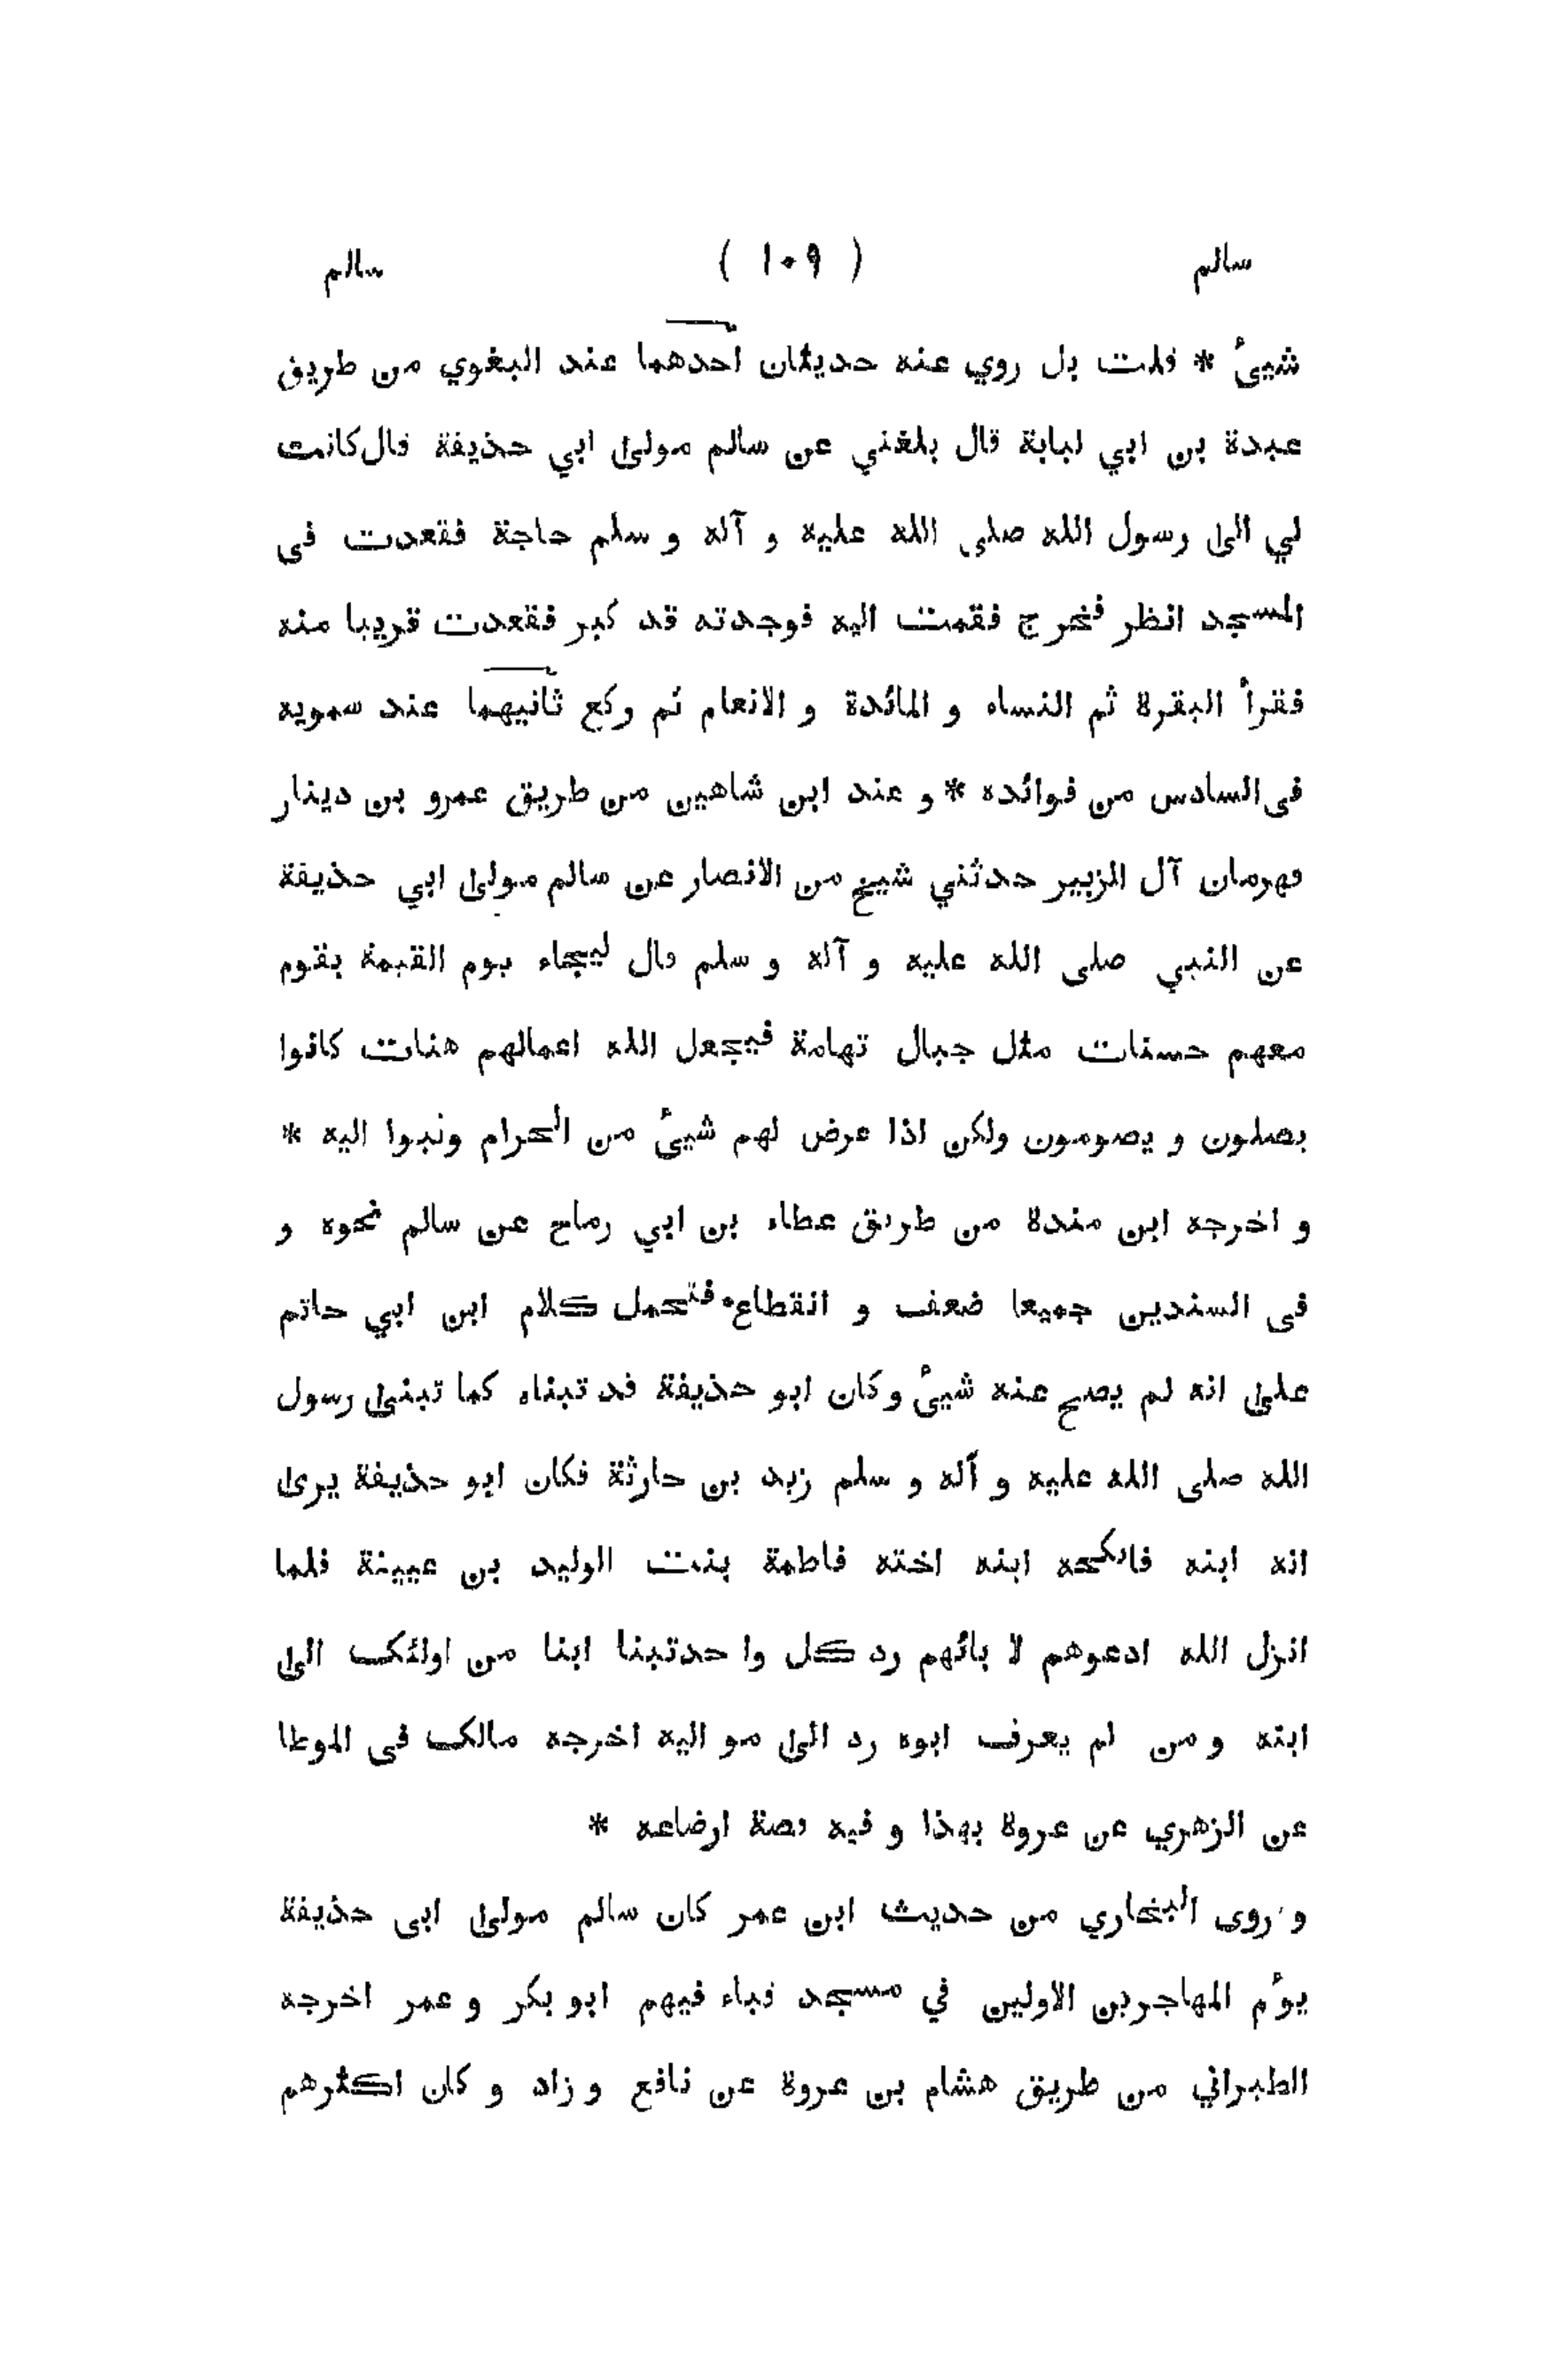 سالم ( ١٠٩ ) سالم
شيئ * قلت بل روي عنه حديثان احدهما عند البغوي من طريق
عبدة بن ابي لبابة قال بلغني عن سالم مولى ابي حذيفة قال كانت
لي الى رسول الله صلى الله عليه و آله و سلم حاجة فقعدت فى
المسجد انظر فخرج فقمت اليه فوجدته قد كبر فقعدت قريبا منه
فقرأ البقرة ثم النساء و المائدة و الانعام ثم ركع ثانيهما عند سمويه
فى السادس من فوائده * و عند ابن شاهين من طريق عمرو بن دينار
قهرمان آل الزبير حدثني شيخ من الانصار عن سالم مولى ابي حذيفة
عن النبي صلى الله عليه و آله و سلم قال ليجاء يوم القيمة بقوم
معهم حسنات مثل جبال تهامة فيجعل الله اعمالهم هنات كانوا
يصلون و يصومون ولكن اذا عرض لهم شيئ من الحرام وثبوا اليه *
و اخرجه ابن مندة من طريق عطاء بن ابي رماح عن سالم نحوه و
فى السندين جميعا ضعف و انقطاع فتحمل كلام ابن ابي حاتم
على انه لم يصح عنه شيئ و كان ابو حذيفة قد تبناه كما تبنى رسول
الله صلى الله عليه و آله و سلم زيد بن حارثة فكان ابو حذيفة يرى
انه ابنه فانكحه ابنه اخته فاطمة بنت الوليد بن عيينة فلما
انزل الله ادعوهم لا بائهم رد كل وا حدتبنا ابنا من اولئك الى
ابنه و من لم يعرف ابوه رد الى مو اليه اخرجه مالك فى الموطا
عن الزهري عن عروة بهذا و فيه قصة ارضاعه *
و روى البخاري من حديث ابن عمر كان سالم مولى ابى حذيفة
يؤم المهاجرين الاولين في مسجد قباء فيهم ابو بكر و عمر اخرجه
الطبراني من طريق هشام بن عروة عن نافع و زاد و كان اكثرهم